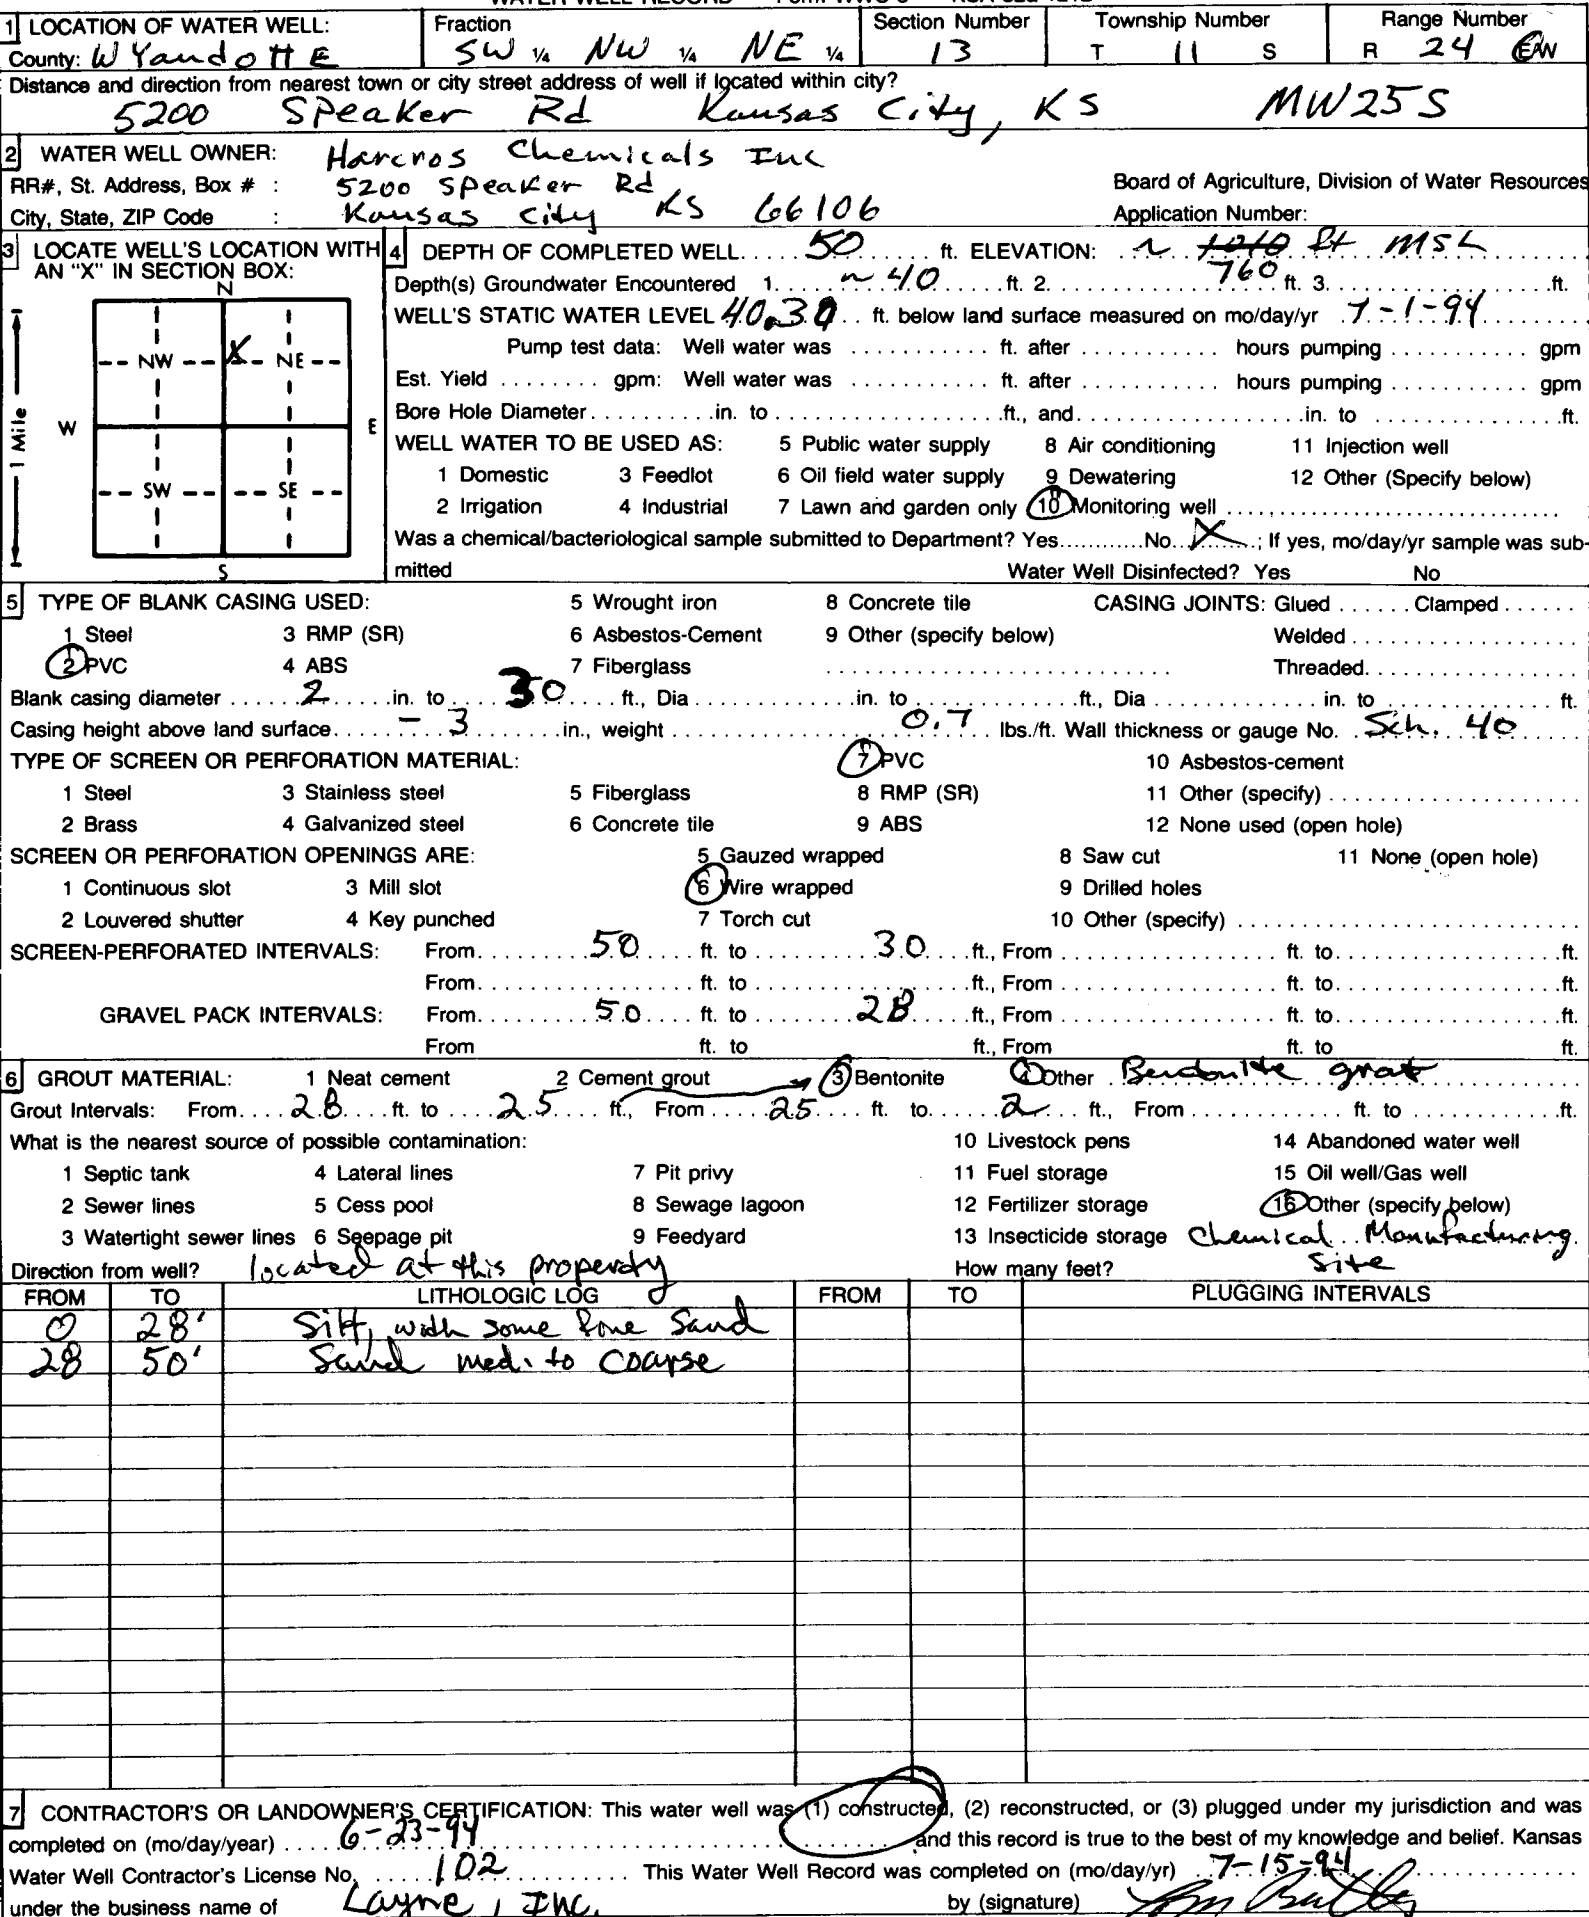 WATER WELL RECORD Form WWC-5 KSA 82a-1212
1 LOCATION OF WATER WELL: Fraction Section Number Township Number Range Number
County: WYandottE SW ¼ NW ¼ NE ¼ 13 T 11 S R 24 E/W
Distance and direction from nearest town or city street address of well if located within city?
5200 SPeaker Rd Kansas City, KS MW25S
2 WATER WELL OWNER: Harcros Chemicals Inc
RR#, St. Address, Box # : 5200 SPeaker Rd Board of Agriculture, Division of Water Resources
City, State, ZIP Code : Kansas City KS 66106 Application Number:
3 LOCATE WELL'S LOCATION WITH AN "X" IN SECTION BOX:
N
NW X NE
1 Mile
W E
SW SE
S
4 DEPTH OF COMPLETED WELL 50 ft. ELEVATION: ~ 1010 ft MSL
760
Depth(s) Groundwater Encountered 1. ~ 40 ft. 2. ft. 3. ft.
WELL'S STATIC WATER LEVEL 40.30 ft. below land surface measured on mo/day/yr 7-1-94
Pump test data: Well water was ft. after hours pumping gpm
Est. Yield gpm: Well water was ft. after hours pumping gpm
Bore Hole Diameter in. to ft., and in. to ft.
WELL WATER TO BE USED AS: 5 Public water supply 8 Air conditioning 11 Injection well
1 Domestic 3 Feedlot 6 Oil field water supply 9 Dewatering 12 Other (Specify below)
2 Irrigation 4 Industrial 7 Lawn and garden only 10 Monitoring well
Was a chemical/bacteriological sample submitted to Department? Yes No X ; If yes, mo/day/yr sample was sub-
mitted Water Well Disinfected? Yes No
5 TYPE OF BLANK CASING USED: 5 Wrought iron 8 Concrete tile CASING JOINTS: Glued Clamped
1 Steel 3 RMP (SR) 6 Asbestos-Cement 9 Other (specify below) Welded
2 PVC 4 ABS 7 Fiberglass Threaded
Blank casing diameter 2 in. to 30 ft., Dia in. to ft., Dia in. to ft.
Casing height above land surface - 3 in., weight 0.7 lbs./ft. Wall thickness or gauge No. Sch. 40
TYPE OF SCREEN OR PERFORATION MATERIAL: 7 PVC 10 Asbestos-cement
1 Steel 3 Stainless steel 5 Fiberglass 8 RMP (SR) 11 Other (specify)
2 Brass 4 Galvanized steel 6 Concrete tile 9 ABS 12 None used (open hole)
SCREEN OR PERFORATION OPENINGS ARE: 5 Gauzed wrapped 8 Saw cut 11 None (open hole)
1 Continuous slot 3 Mill slot 6 Wire wrapped 9 Drilled holes
2 Louvered shutter 4 Key punched 7 Torch cut 10 Other (specify)
SCREEN-PERFORATED INTERVALS: From 50 ft. to 30 ft., From ft. to ft.
From ft. to ft., From ft. to ft.
GRAVEL PACK INTERVALS: From 50 ft. to 28 ft., From ft. to ft.
From ft. to ft., From ft. to ft.
6 GROUT MATERIAL: 1 Neat cement 2 Cement grout 3 Bentonite 4 Other Bentonite grout
Grout Intervals: From 28 ft. to 25 ft., From 25 ft. to 2 ft., From ft. to ft.
What is the nearest source of possible contamination: 10 Livestock pens 14 Abandoned water well
1 Septic tank 4 Lateral lines 7 Pit privy 11 Fuel storage 15 Oil well/Gas well
2 Sewer lines 5 Cess pool 8 Sewage lagoon 12 Fertilizer storage 16 Other (specify below)
3 Watertight sewer lines 6 Seepage pit 9 Feedyard 13 Insecticide storage Chemical Manufacturing
Direction from well? located at this property How many feet? Site
FROM TO LITHOLOGIC LOG FROM TO PLUGGING INTERVALS
0 28' Silt, with some fine Sand
28 50' Sand med. to coarse
7 CONTRACTOR'S OR LANDOWNER'S CERTIFICATION: This water well was (1) constructed, (2) reconstructed, or (3) plugged under my jurisdiction and was
completed on (mo/day/year) 6-23-94 and this record is true to the best of my knowledge and belief. Kansas
Water Well Contractor's License No. 102 This Water Well Record was completed on (mo/day/yr) 7-15-94
under the business name of Layne, Inc. by (signature)